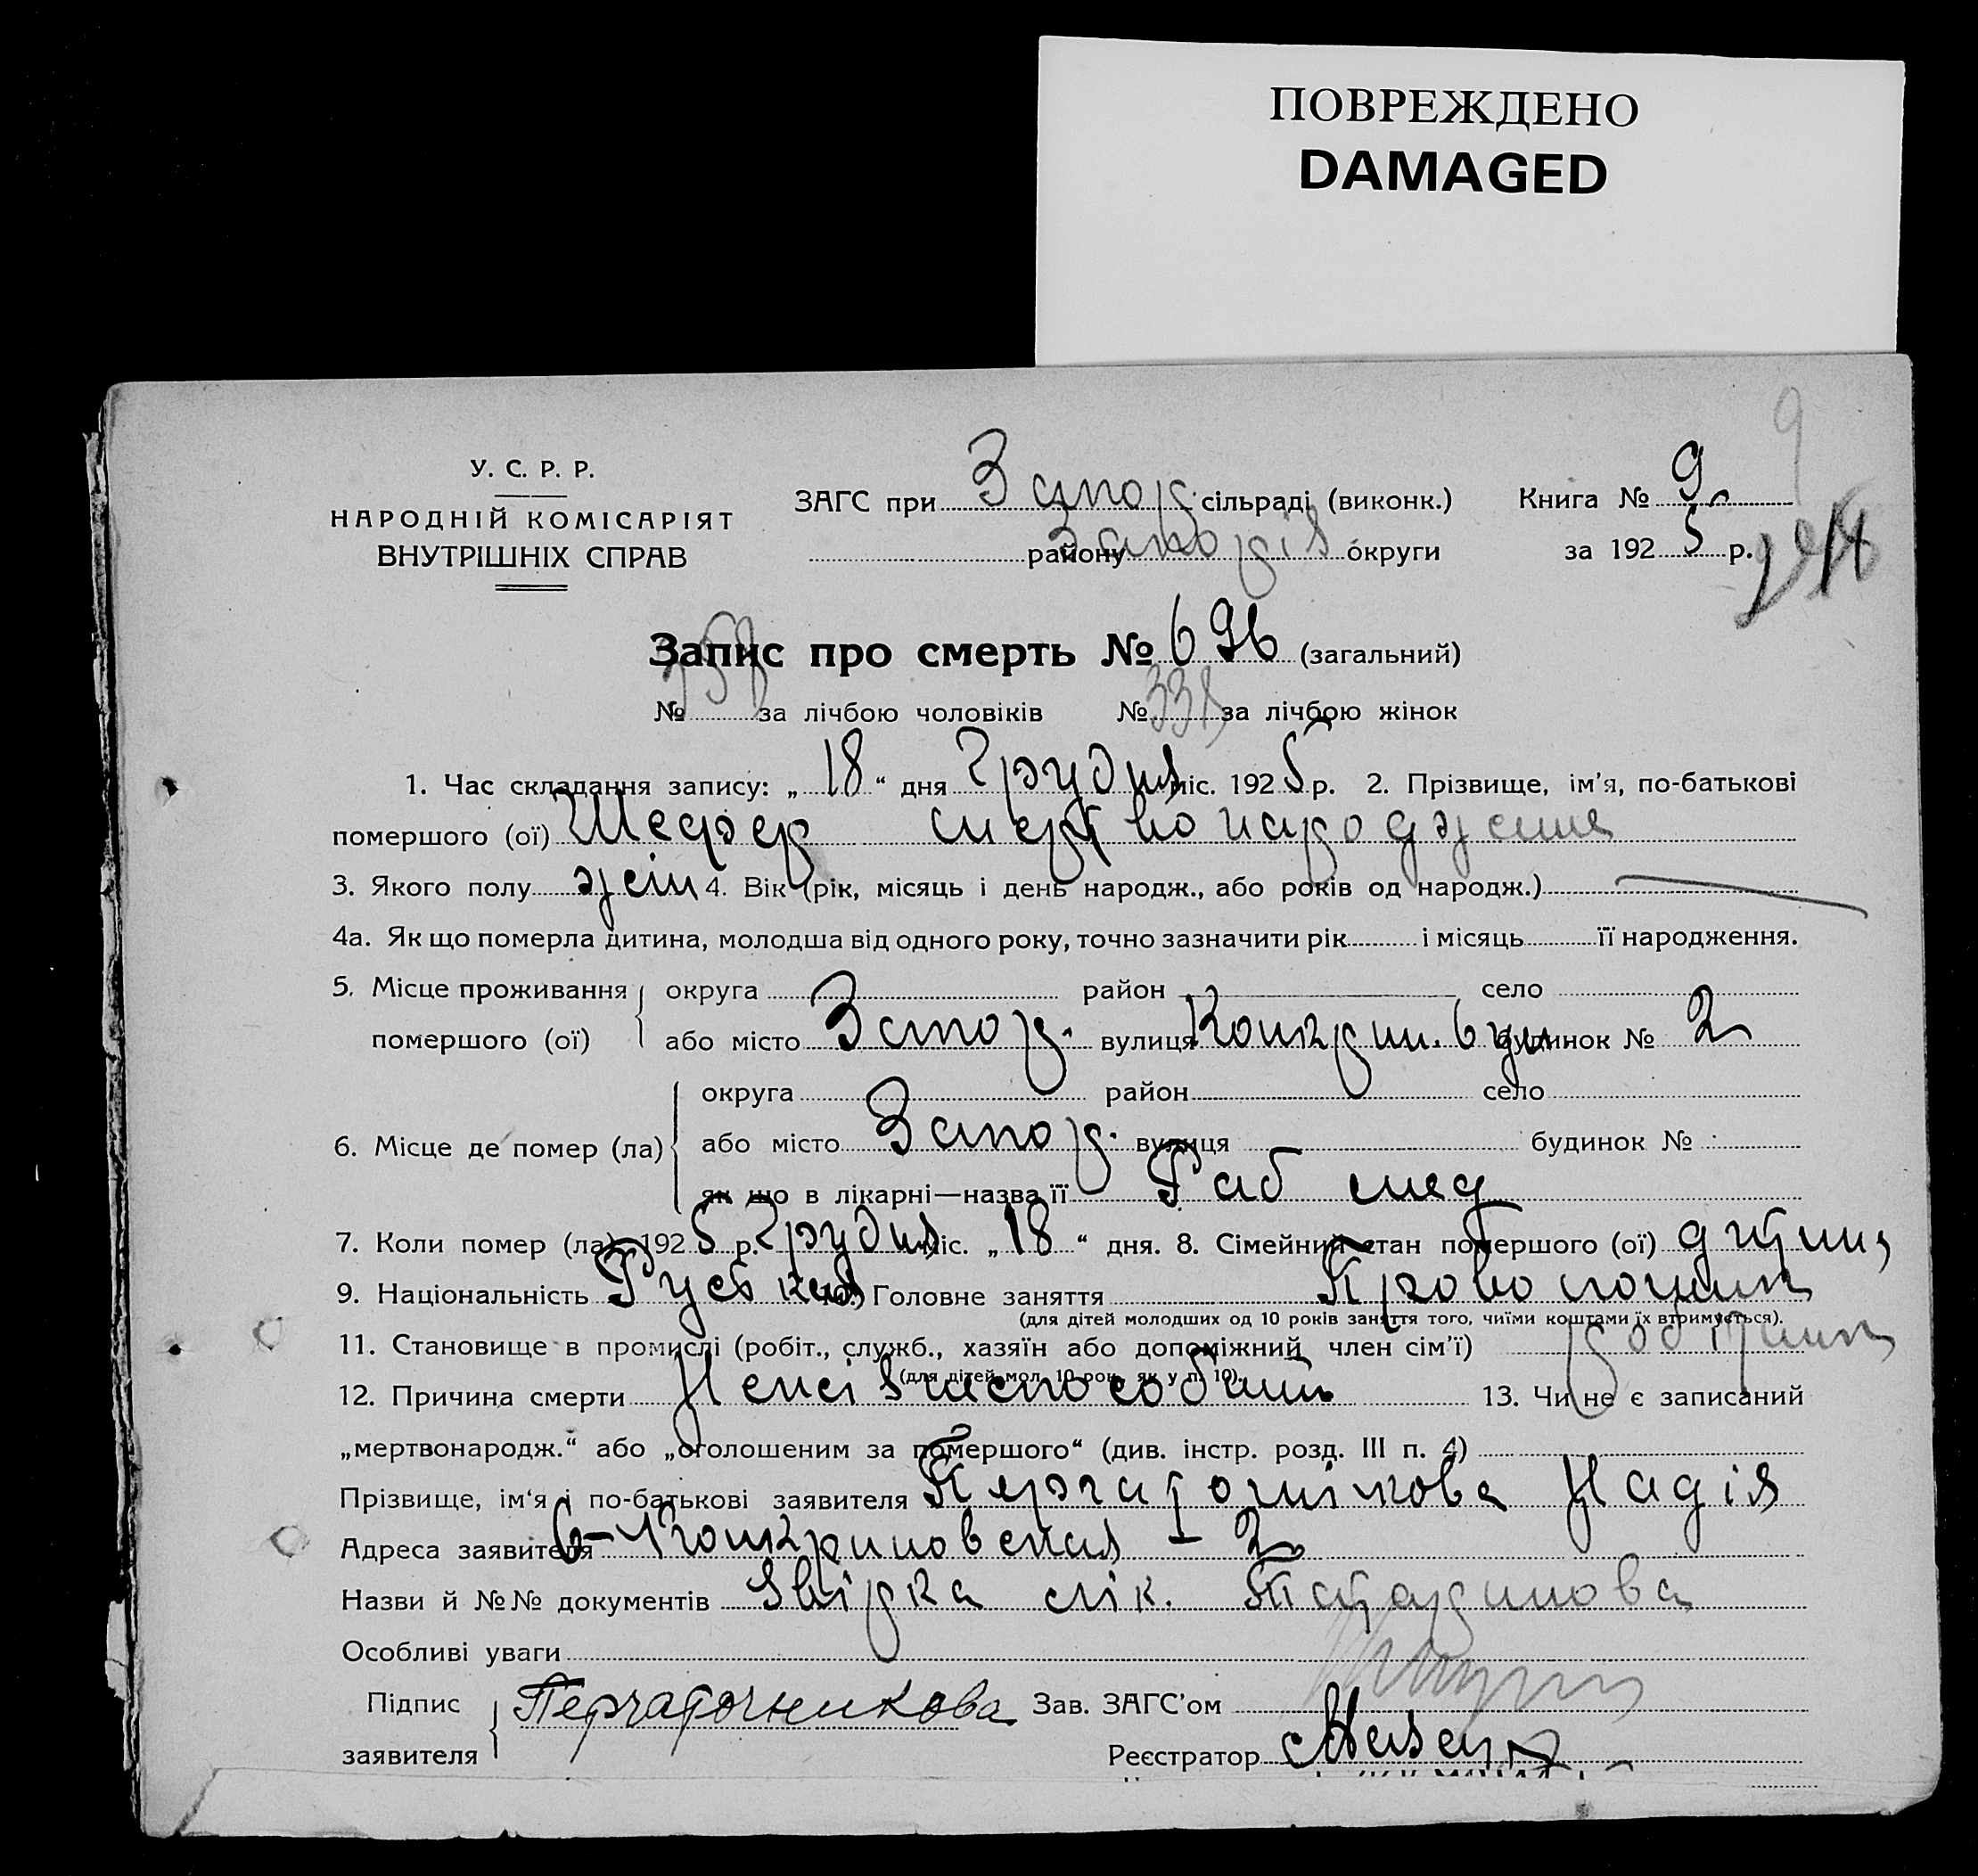 ПОВРЕЖДЕНО
DAMAGED
9
У. С. Р. Р.
НАРОДНІЙ КОМІСАРІЯТ
ВНУТРІШНІХ СПРАВ
ЗАГС при Запор. сільраді (виконк.)
району Запоріз округи
Книга № 9
за 1925 р.
Запис про смерть № 696 (загальний)
№ 358 за лічбою чоловіків № 338 за лічбою жінок
1. Час складання запису: „18“ дня Грудня міс. 1925 р. 2. Прізвище, ім'я, по-батькові
помершого (ої) Шефер мертвонароджене
3. Якого полу жін 4. Вік (рік, місяць і день народж., або років од народж.) —
4а. Як що померла дитина, молодша від одного року, точно зазначити рік і місяць її народження.
5. Місце проживання помершого (ої) округа район село
або місто Запор. вулиця будинок № 2
6. Місце де помер (ла) округа район село
або місто Запор. вулиця будинок №
як що в лікарні—назва її Раб мед
7. Коли помер (ла) 1925 р. Грудня міс. „18“ дня. 8. Сімейний стан помершого (ої) дитина
9. Національність Руська 10. Головне заняття
(для дітей молодших од 10 років заняття того, чиїми коштами їх втримується).
11. Становище в промислі (робіт., служб., хазяїн або допоміжний член сім'ї) робітник
(для дітей мол. 10 рок. як у п. 10).
12. Причина смерти 13. Чи не є записаний
„мертвонародж.“ або „оголошеним за помершого“ (див. інстр. розд. III п. 4)
Прізвище, ім'я і по-батькові заявителя Перчаточнікова Надія
Адреса заявителя – 2
Назви й №№ документів лік.
Особливі уваги
Підпис заявителя Перчаточникова Зав. ЗАГС'ом
Реєстратор